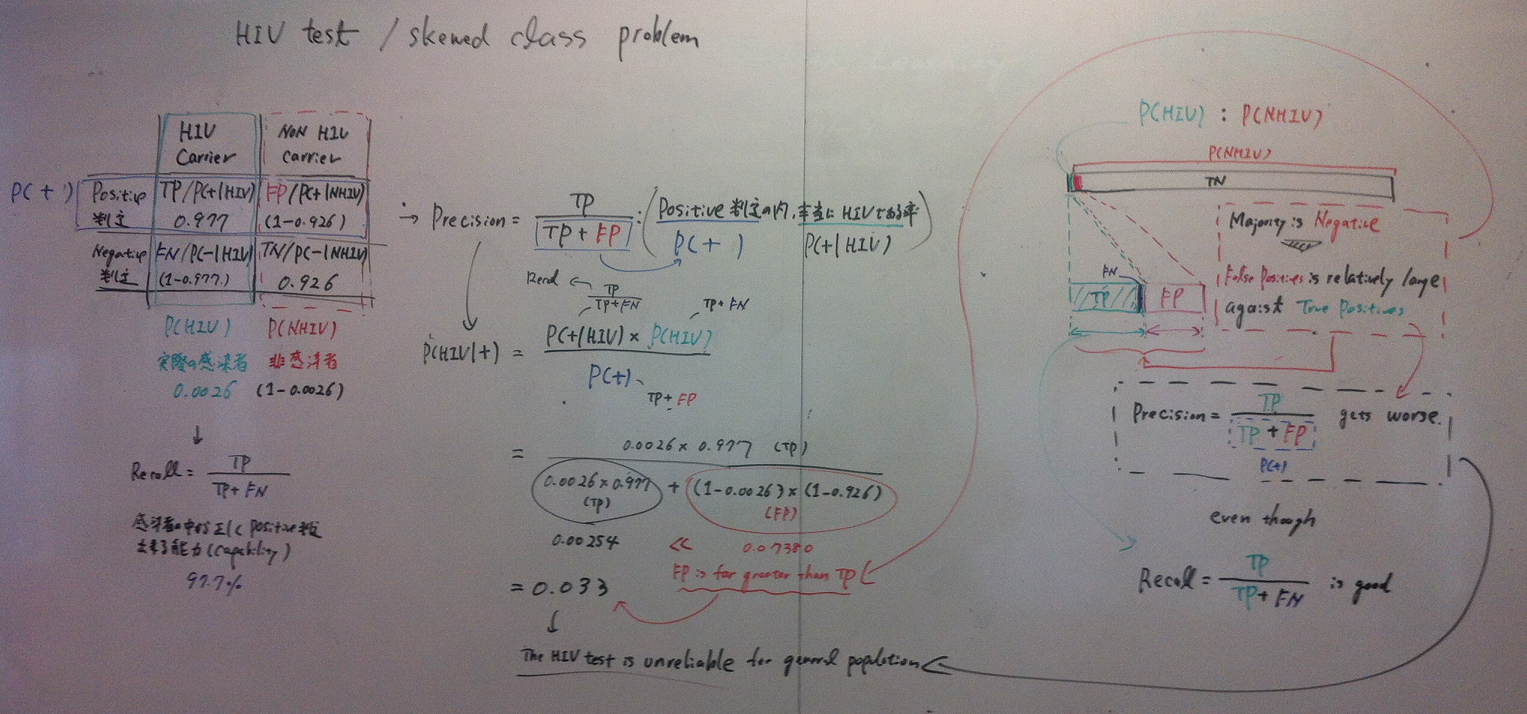 HIV test / skewed class problem
HIV Carrier
NON HIV Carrier
P(+)
Positive 判定
TP/P(+|HIV)
0.977
FP/P(+|NHIV)
(1-0.926)
Negative 判定
FN/P(-|HIV)
(1-0.977)
TN/P(-|NHIV)
0.926
P(HIV)
実際の感染者
0.0026
P(NHIV)
非感染者
(1-0.0026)
↓
Recall = TP / TP + FN
感染者の中から正しく positive 判定
出来る能力 (capability)
97.7%
→ Precision = TP / TP + FP : (Positive 判定の内、本当に HIV である率)
P(+)
P(+|HIV)
Recall ← TP / TP+FN
TP + FN
P(HIV|+) = P(+|HIV) × P(HIV) / P(+)
TP + FP
= 0.0026 × 0.977 (TP)
0.0026 × 0.977 (TP) + (1-0.0026) × (1-0.926) (FP)
0.00254 << 0.07380
FP is far greater than TP
= 0.033
↓
The HIV test is unreliable for general population
P(HIV) : P(NHIV)
P(NHIV)
TN
Majority is Negative
FN
TP
FP
False Positives is relatively large
against True Positives
Precision = TP / TP + FP gets worse.
P(+)
even though
Recall = TP / TP + FN is good